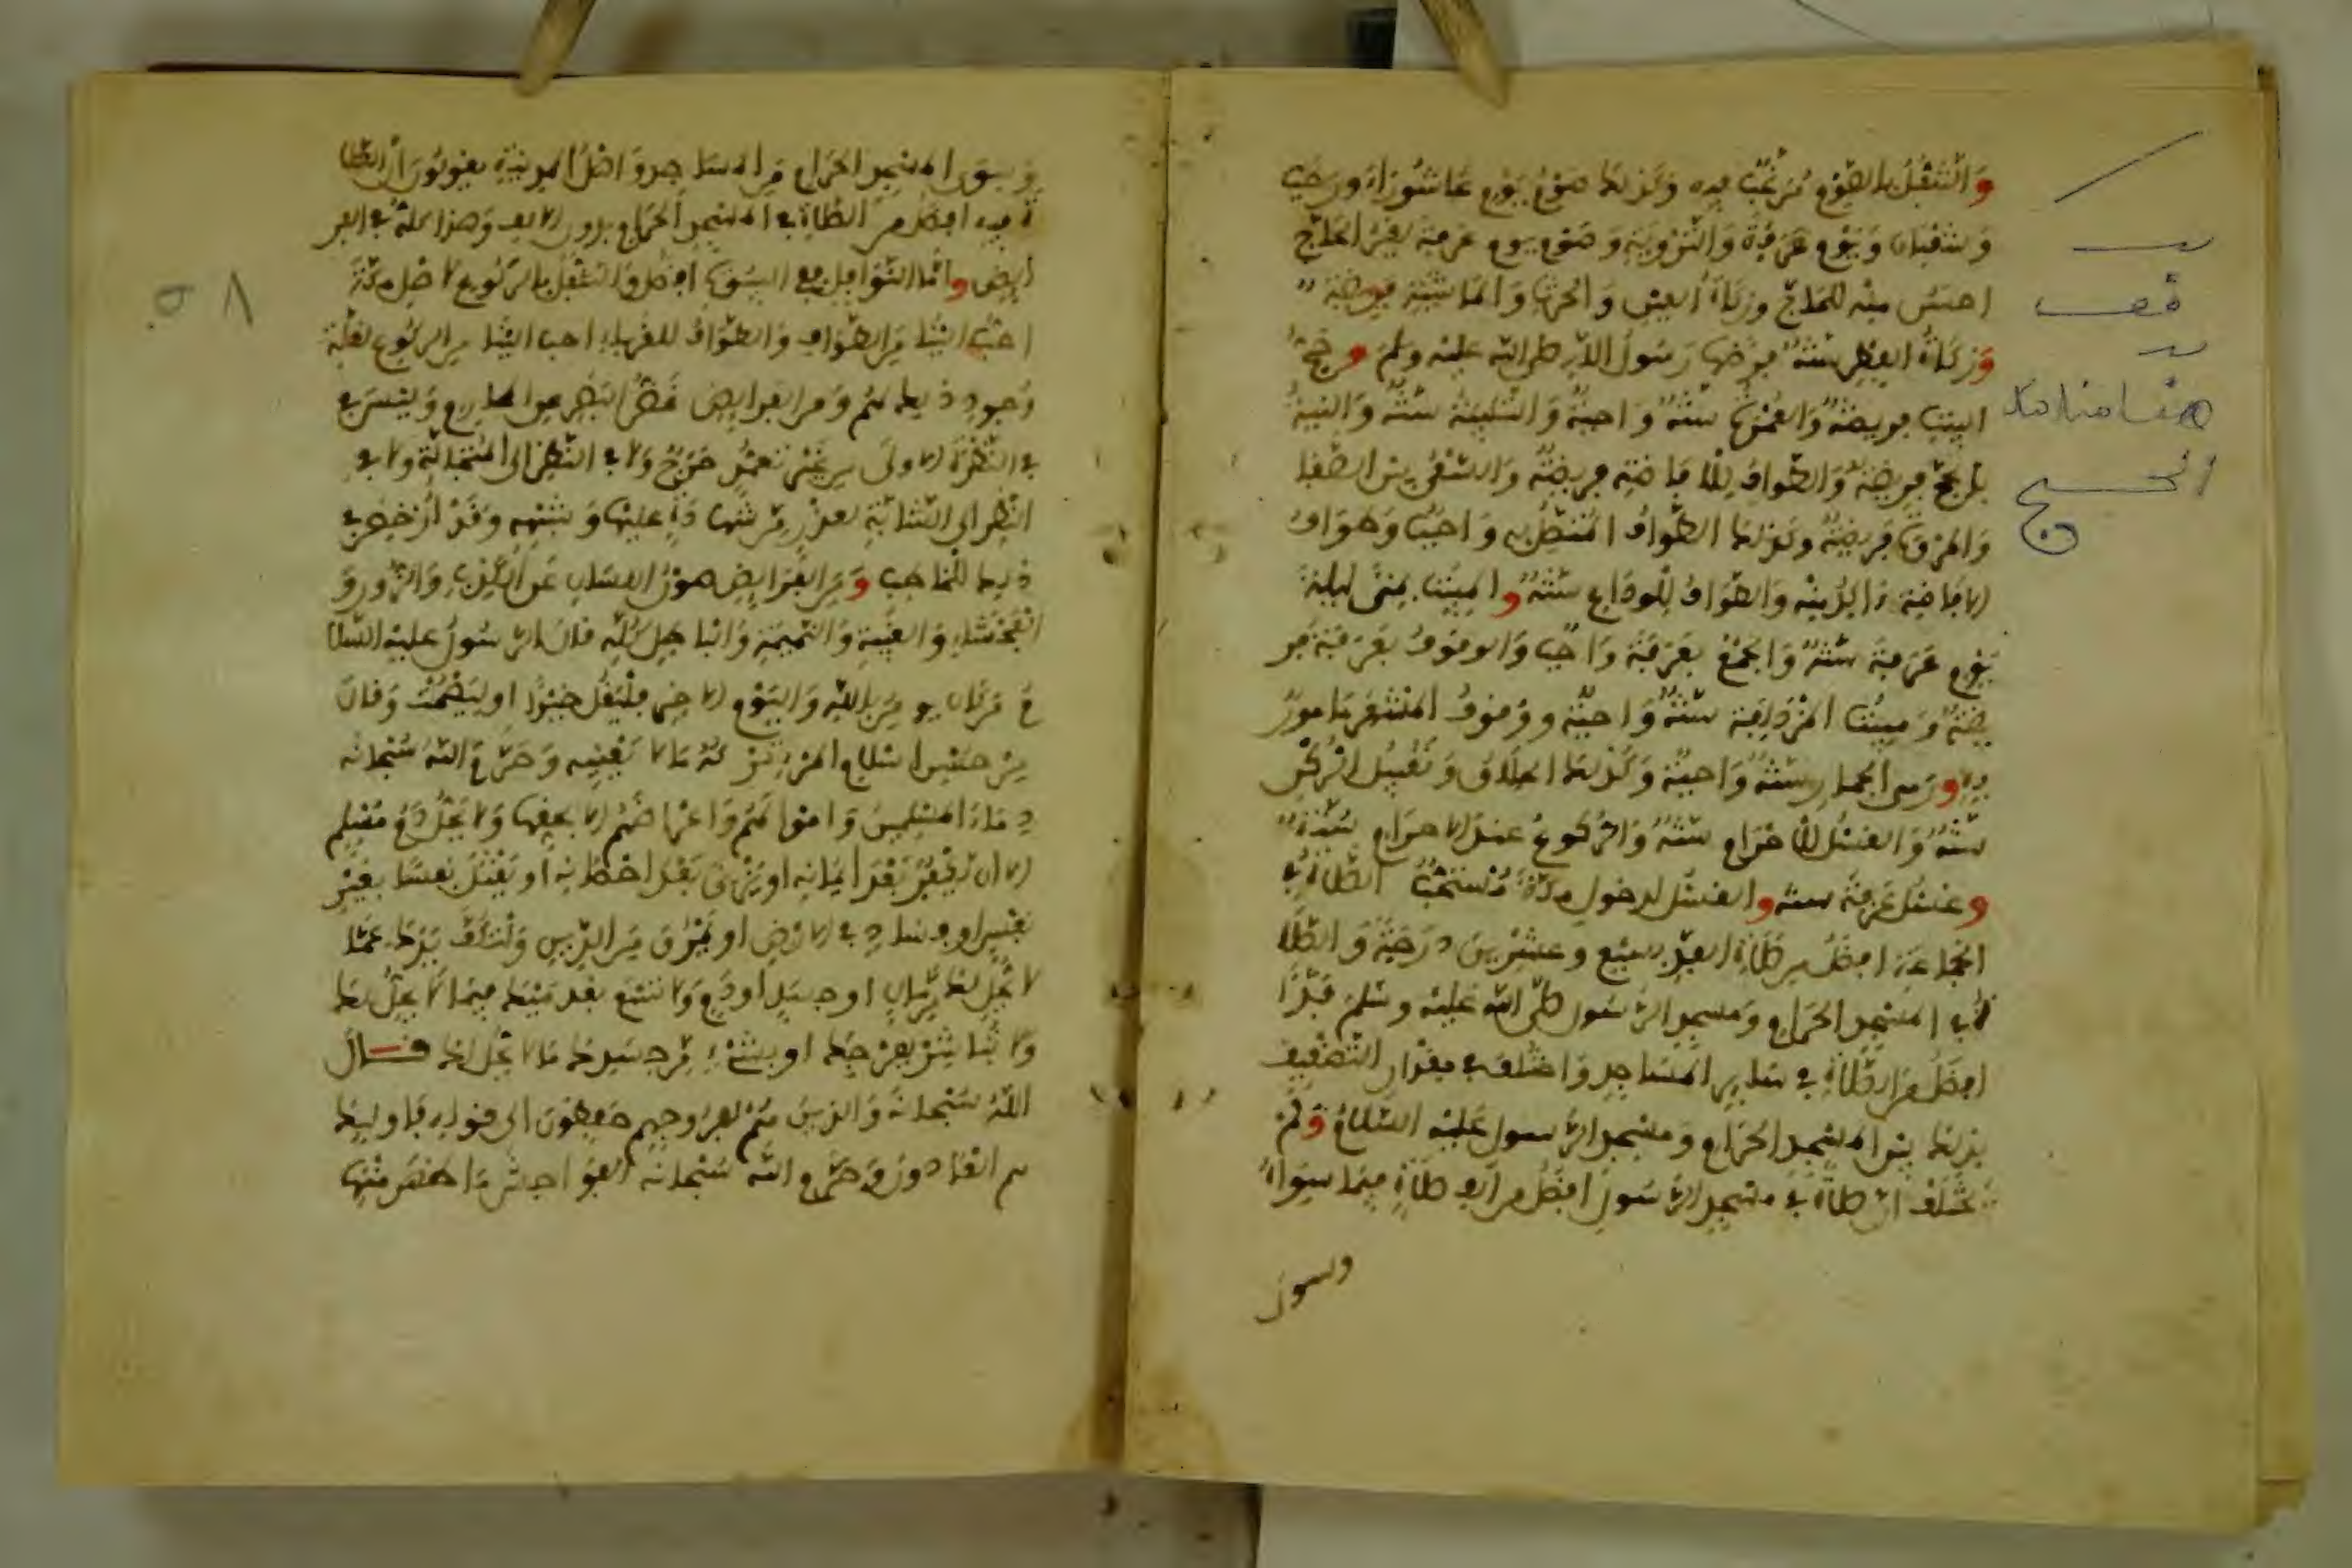 والتنفل بالصوم مرغب فيه وكذلك صوم يوم عاشوراء ورجب
وشعبان ويوم عرفة والتروية وصوم يوم عرفة لغير الحاج
احسن منه للحاج وزكاة العين والحرث والماشية فريضة
وزكاة الفطر سنة فرضها رسول الله صلى الله عليه وسلم وحج
البيت فريضة والعمرة سنة واجبة والتلبية سنة والنية
بالحج فريضة والطواف للافاضة فريضة والسعي بين الصفا
والمروة فريضة وكذلك الطواف المتصل به واجب وطواف
الافاضة ءاكد منه والطواف للوداع سنة والمبيت بمنى ليلة
يوم عرفة سنة والجمع بعرفة واجب والوقوف بعرفة فر
يضة ومبيت المزدلفة سنة واجبة ووقوف المشعر مامور
به ورمي الجمار سنة واجبة وكذلك الحلاق وتقبيل الركن
سنة والغسل للاحرام سنة والركوع عند الاحرام سنة
وغسل عرفة سنة والغسل لدخول مكة مستحب الصلاة في
الجماعة افضل من صلاة الفذ بسبع وعشرين درجة والصلا
ة في المسجد الحرام ومسجد الرسول صلى الله عليه وسلم فذا
افضل من الصلاة في ساير المساجد واختلف في مقدار التضعيف
بذلك بين المسجد الحرام ومسجد الرسول عليه السلام ولم
يختلف ان صلاة في مسجد الرسول افضل من الف صلاة فيما سواه
وسوى
هنا مناسك
الحج
وسوى المسجد الحرام من المساجد واهل المدينة يقولون ان الصلا
ة فيه افضل من الصلاة في المسجد الحرام بدون الالف وهذا كله في الفر
ايض واما النوافل ففي البيوت افضل والتنفل بالركوع لاهل مكة
احب الينا من الطواف والطواف للغرباء احب الينا من الركوع لقلة
وجود ذلك لهم ومن الفرايض غض البصر عن المحارم وليس
في النظرة الاولى بغير تعمد حرج ولا في النظر الى المتجالة ولا في
النظر الى الشابة لعذر من شهادة عليها وشبهه وقد ارخص في
ذلك للخاطب ومن الفرايض صون اللسان عن الكذب والزور و
الفحشاء والغيبة والنميمة والباطل كله قال الرسول عليه السلا
م من كان يومن بالله واليوم الاخر فليقل خيرا او ليصمت وقال
من حسن اسلام المرء تركه ما لا يعنيه وحرم الله سبحانه
دماء المسلمين واموالهم واعراضهم الا بحقها ولا يحل دم مسلم
الا ان يكفر بعد ايمانه او يزني بعد احصانه او يقتل نفسا بغير
نفس او فساد في الارض او يمرق من الدين ولتكف يدك عما
لا يحل لك من مال او جسد او دم ولا تسع بقدميك فيما لا يحل لك
ولا تباشر بفرجك او بشيء من جسدك ما لا يحل لك قال
الله سبحانه والذين هم لفروجهم حافظون الى قوله فاوليك
هم العادون وحرم الله سبحانه الفواحش ما ظهر منها